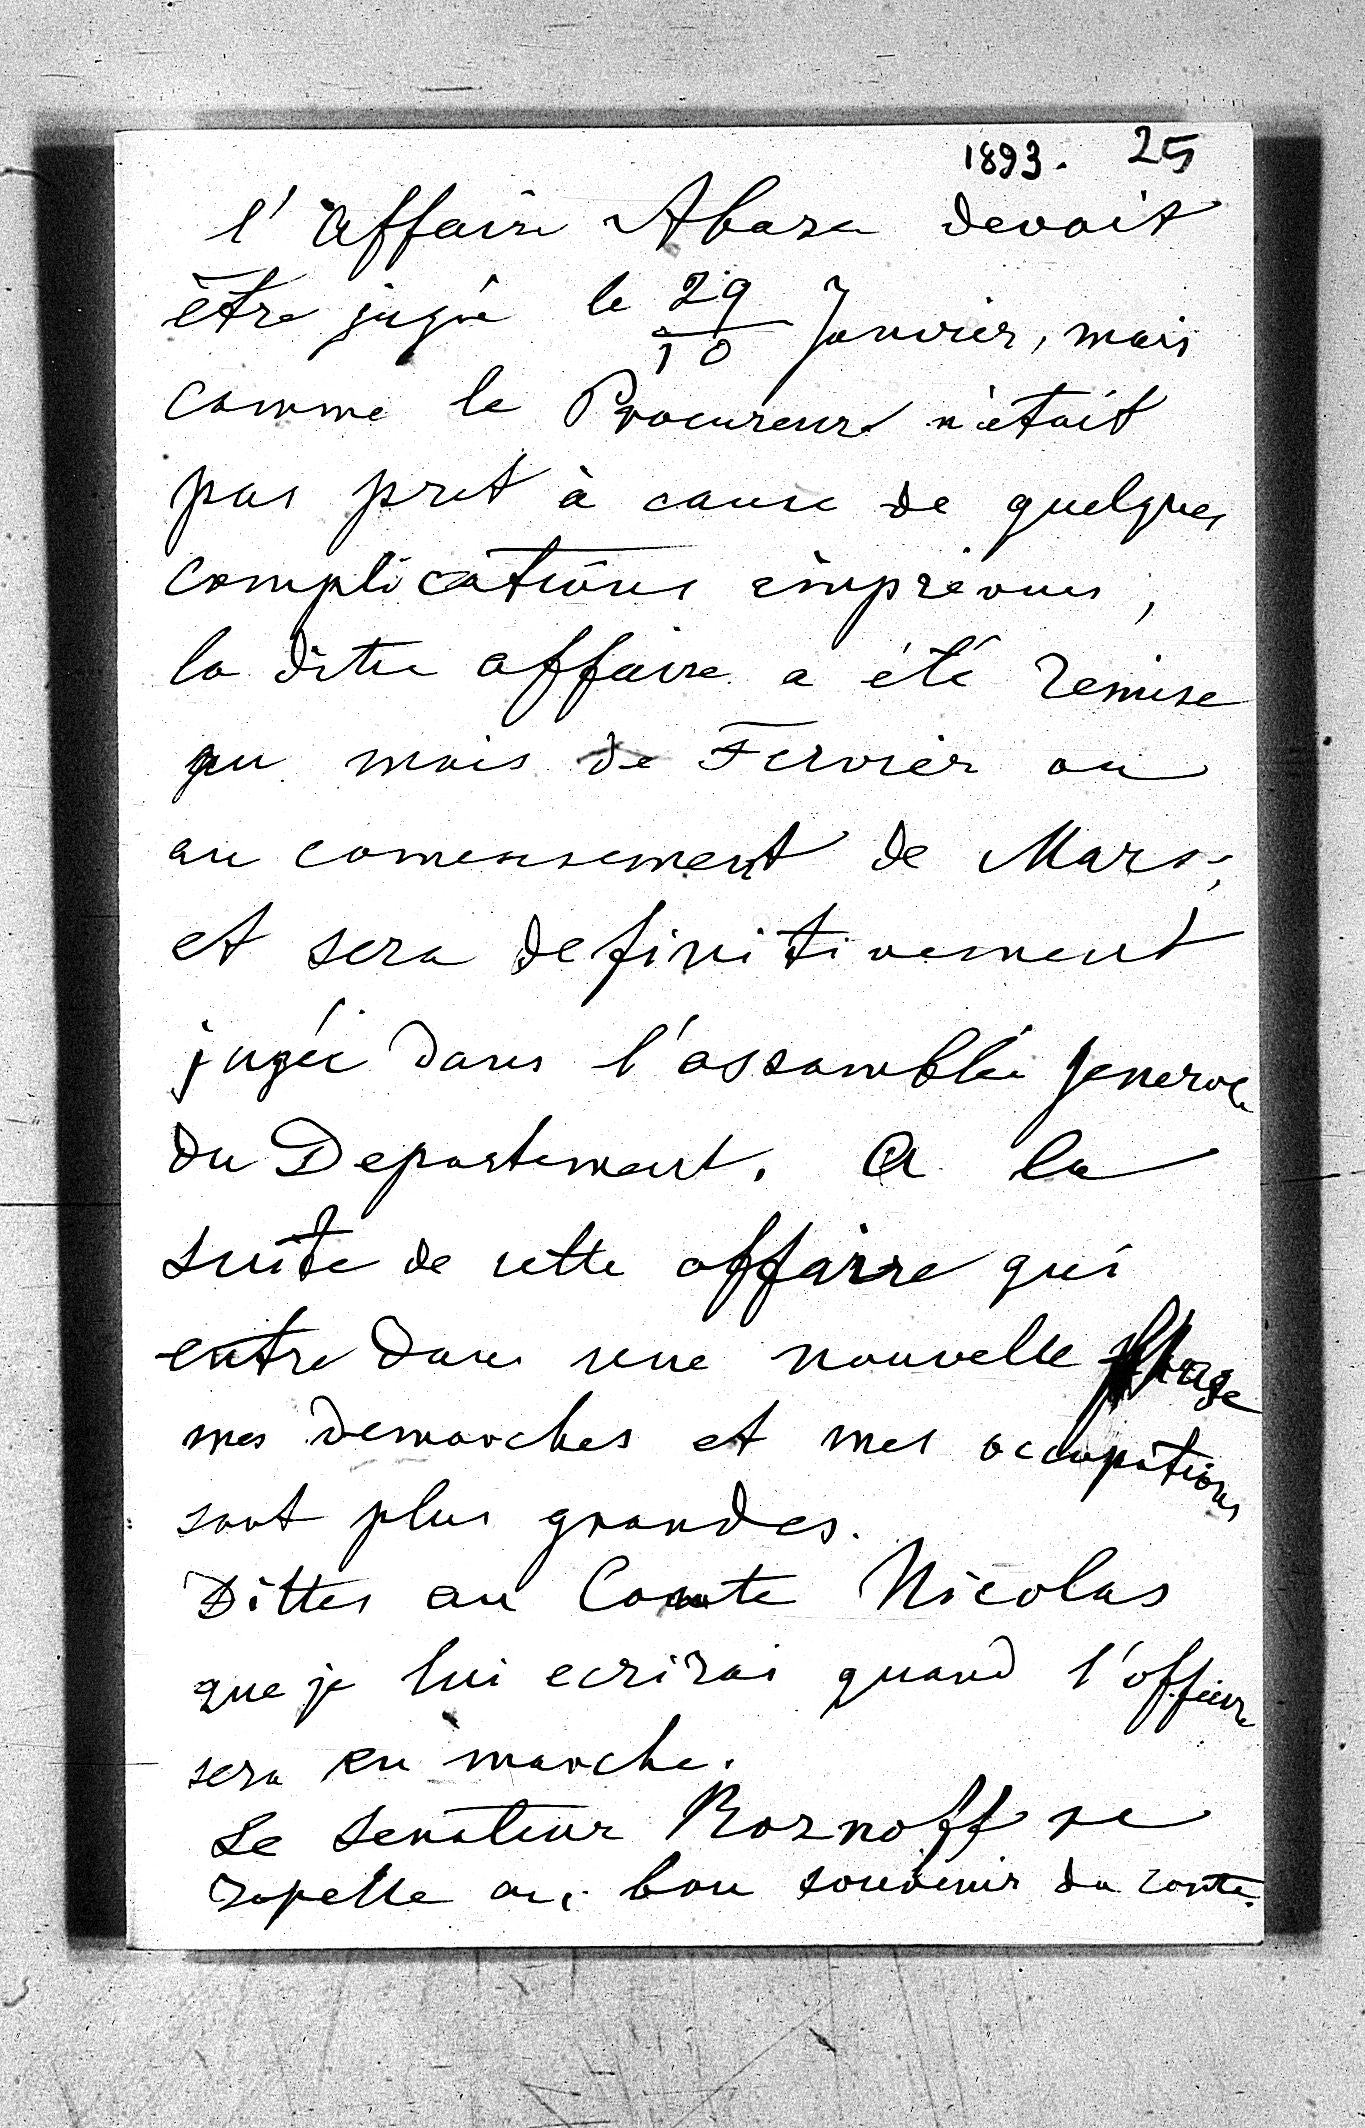 1893. 25
l'affaire Abaza devait
être jugée le 29/10 Janvier, mais
comme le Procureur n'etait
pas pret à cause de quelques
complications imprévues,
la ditte affaire a été remise
au mois de Fervier ou
au comensement de Mars,
et sera definitivement
jugée dans l'assamblée generale
du Departement. A la
suite de cette affaire qui
entre dans une nouvelle phase
mes demarches et mes occupations
sont plus grandes.
Dittes au Comte Nicolas
que je lui ecrirai quand l'affaire
sera en marche.
Le Senateur Roznoff se
rapelle au bon souvenir du conte.